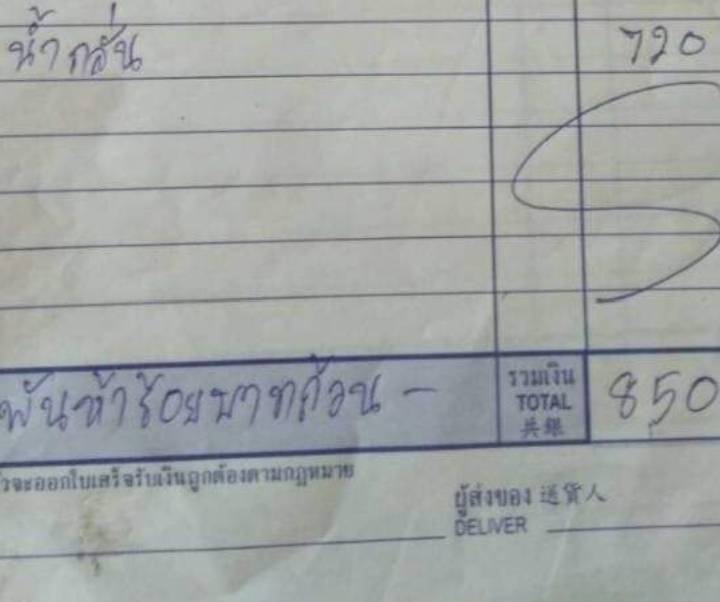 น้ำกลั่น 720
พันห้าร้อยบาทถ้วน - รวมเงิน 850
TOTAL
共銀
จะออกใบเสร็จรับเงินถูกต้องตามกฎหมาย
ผู้ส่งของ 送貨人
DELIVER